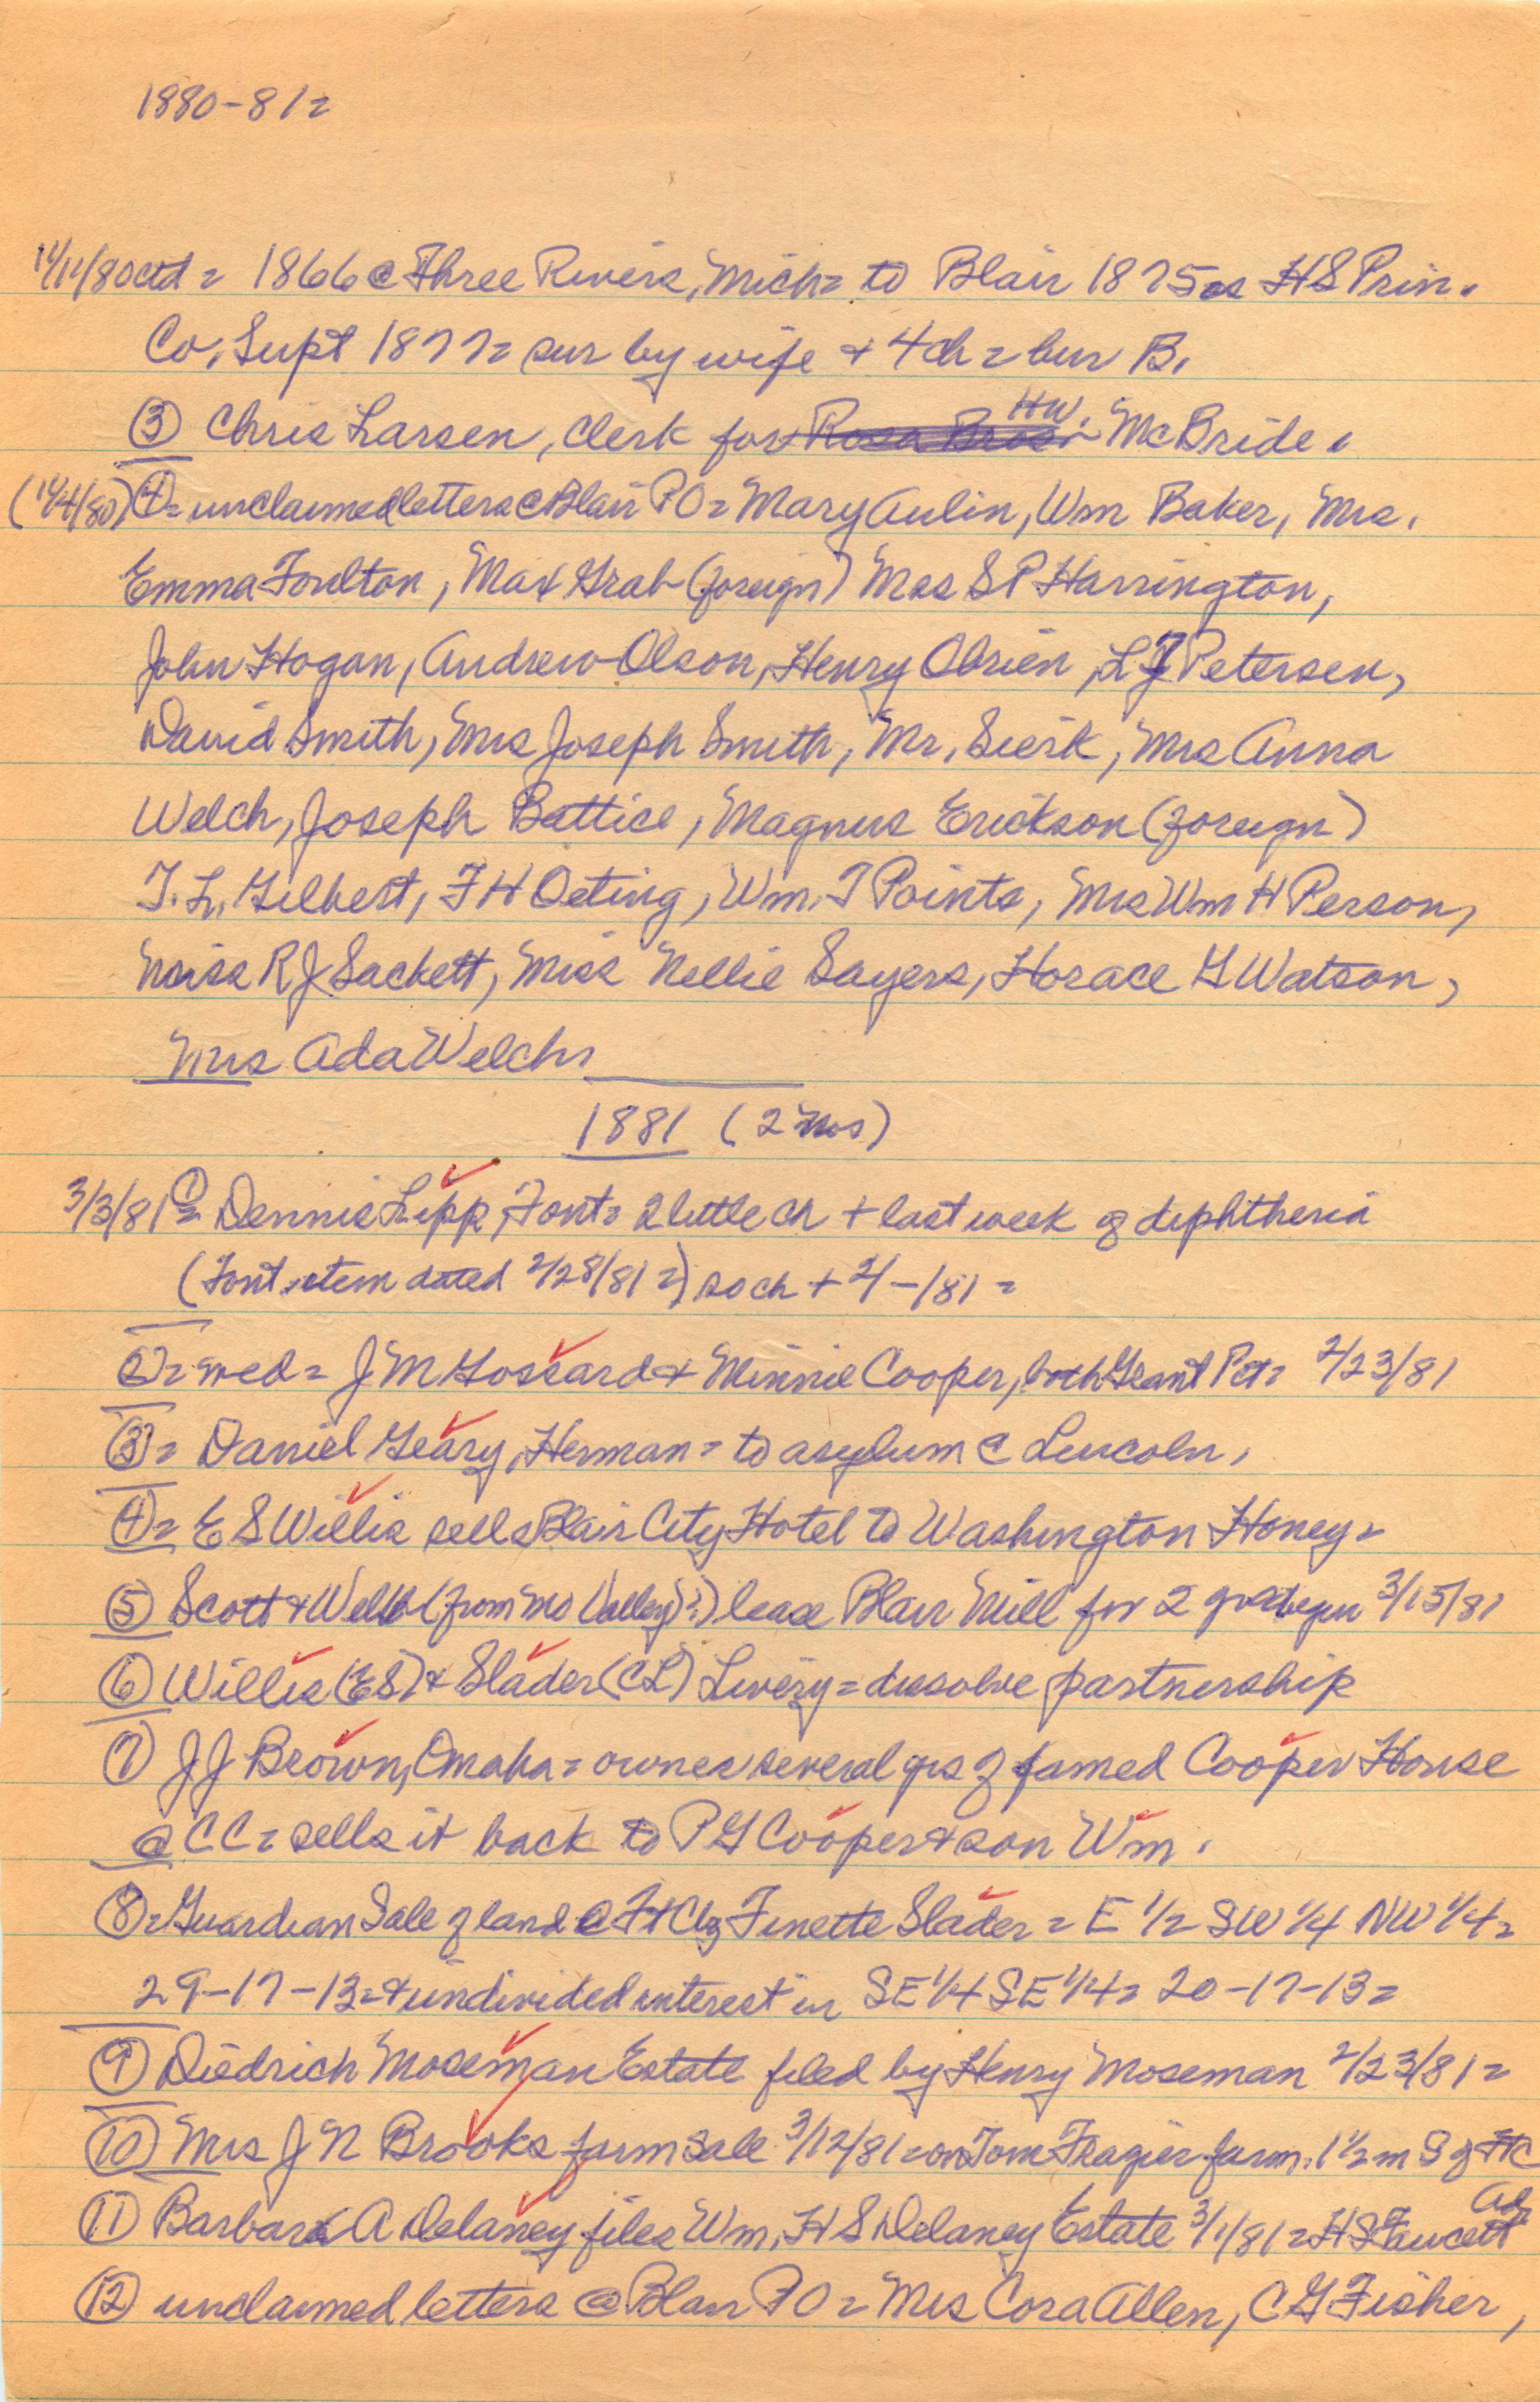 1880-81=
11/11/80 ctd = 1866 @ Three Rivers, Mich = to Blair 1875 as HS Prin.
Co. Supt 1877 = sur by wife + 4 ch = bur B.
③ Chris Larsen, Clerk for Rosa Bros. HW. McBride.
(11/4/80) ④ = unclaimed letters @ Blair PO = Mary Aulin, Wm Baker, Mrs.
Emma Foulton, Max Grab (foreign) Mrs S P Harrington,
John Hogan, Andrew Olson, Henry Obrien, L J Petersen,
David Smith, Mrs Joseph Smith, Mr. Sierk, Mrs Anna
Welch, Joseph Battice, Magnus Erickson (foreign)
T. L. Gilbert, F H Oeting, Wm. T Points, Mrs Wm H Person,
Miss R J Sackett, Miss Nellie Sayers, Horace G Watson,
Mrs Ada Welch.
1881 (2 nos)
3/3/81 ① = Dennis Lipp, Font = 2 little ch + last week of diphtheria
(Font. item dated 2/28/81 =) so ch + 2/-/81 =
② = wed = J M Gossard + Minnie Cooper, both Grant Pct = 2/23/81
③ = Daniel Geary, Herman = to asylum @ Lincoln.
④ = E S Willis sells Blair City Hotel to Washington Honey =
⑤ Scott + Webb (from Mo Valley?) lease Blair Mill for 2 yrs begin 3/15/81
⑥ Willis (ES) + Slader (CL) Livery = dissolve partnership
⑦ J J Brown, Omaha = owner several yrs of famed Cooper House
@ CC = sells it back to P G Cooper + son Wm.
⑧ = Guardian Sale of land @ Ft C by Finette Slader = E 1/2 SW 1/4 NW 1/4 =
29-17-13 = + undivided interest in SE 1/4 SE 1/4 = 20-17-13 =
⑨ Diedrich Moseman Estate filed by Henry Moseman 2/23/81 =
⑩ Mrs J N Brooks farm sale 3/12/81 = on Tom Frazier farm. 1 1/2 m S of Ft C
⑪ Barbara A Delaney files Wm. H S Delaney Estate 3/1/81 = H S Fawcett Ad
⑫ unclaimed letters @ Blair PO = Mrs Cora Allen, C G Fisher,